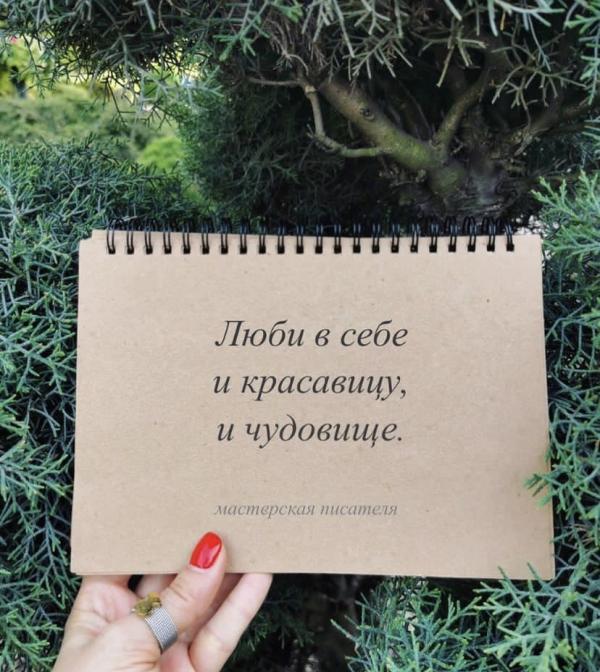 Люби в себе
и красавицу,
и чудовище.
мастерская писателя